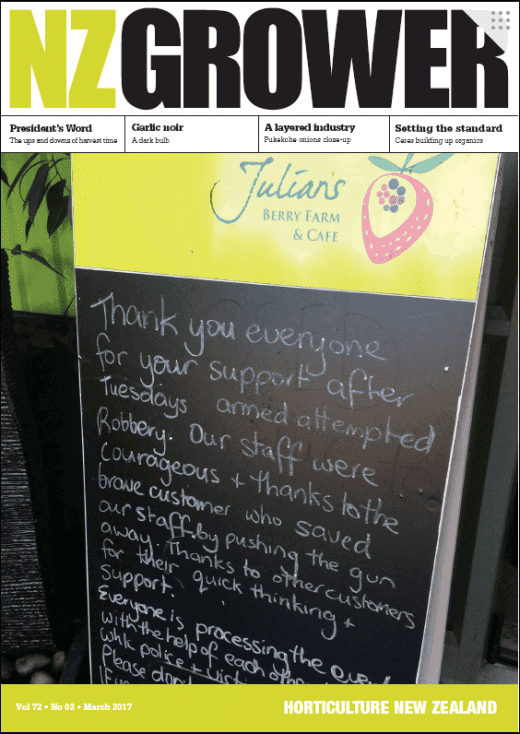 NZGROWER
President's Word
The ups and downs of harvest time
Garlic noir
A dark bulb
A layered industry
Pukekohe onions close-up
Setting the standard
Ceres building up organics
Julian's
BERRY FARM
& CAFE
Thank you everyone
for your support after
Tuesdays armed attempted
Robbery. Our staff were
courageous + thanks to the
brave customer who saved
our staff by pushing the gun
away. Thanks to other customers
for their quick thinking +
support.
Everyone is processing the
with the help of each
police +
Please don't
Vol 72 • No 02 • March 2017
HORTICULTURE NEW ZEALAND